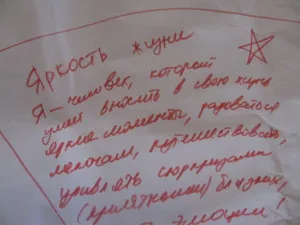 Яркость жизни
Я – человек, который
умеет вносить в свою жизнь
яркие моменты, радоваться
мелочам, путешествовать,
удивлять сюрпризами
(приятными) близких,
эмоции!